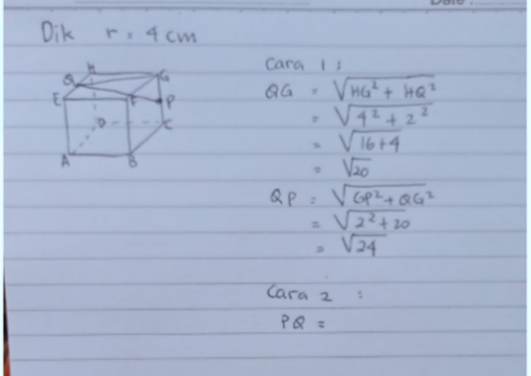 Dik r = 4 cm
H
Q
G
E
F
P
D
C
A
B
Cara 1 :
QG = √HG² + HQ²
= √4² + 2²
= √16+4
= √20
QP = √GP² + QG²
= √2² + 20
= √24
Cara 2 :
PQ =